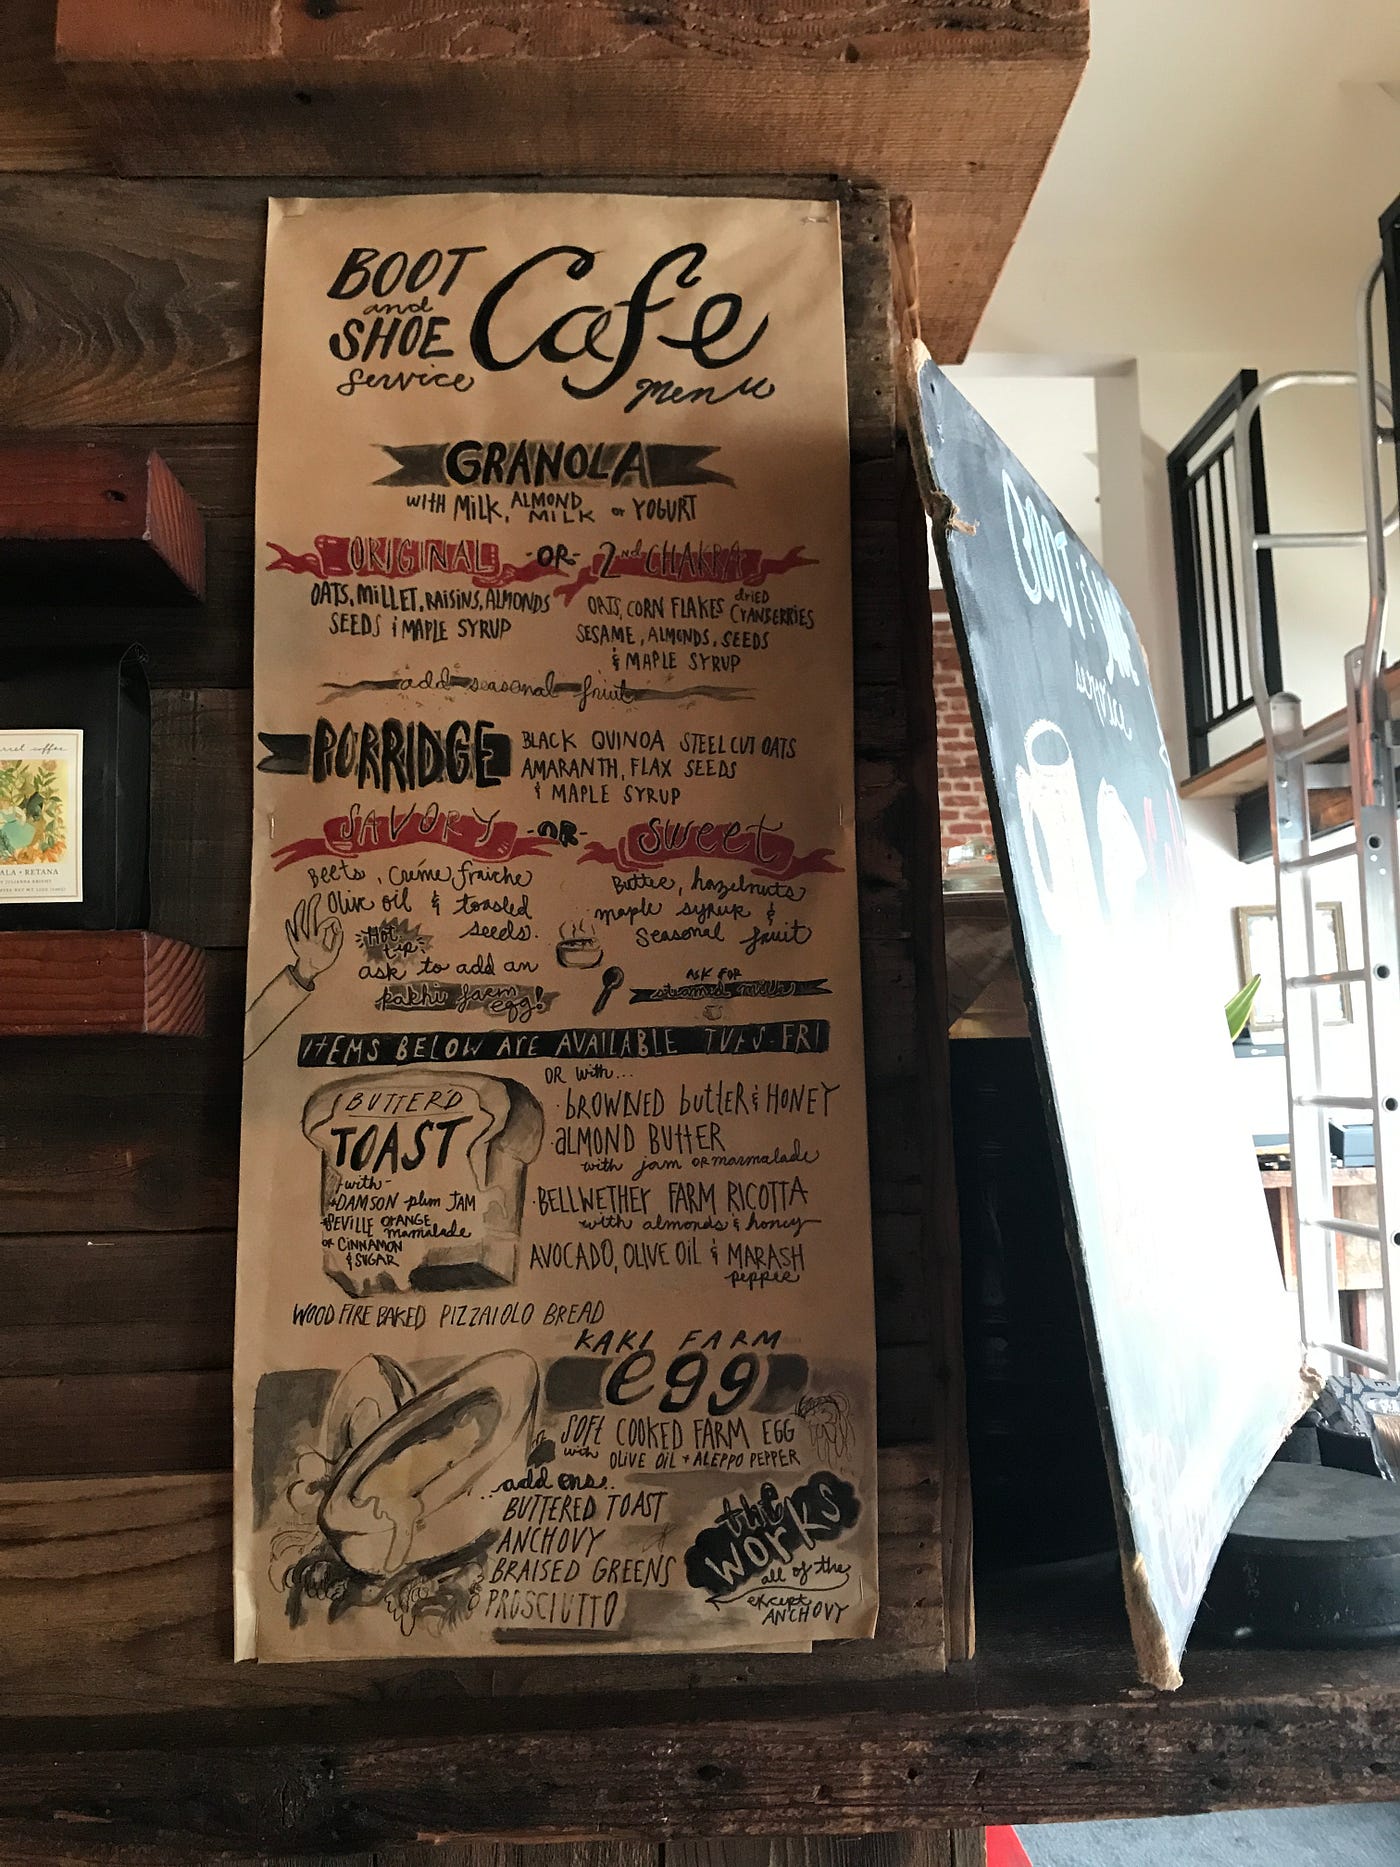 BOOT
and
SHOE
Service
Cafe
Menu
GRANOLA
WITH MILK, ALMOND MILK or YOGURT
ORIGINAL -OR- 2nd CHAKRA
OATS, MILLET, RAISINS, ALMONDS
SEEDS & MAPLE SYRUP
OATS, CORN FLAKES dried CRANBERRIES
SESAME, ALMONDS, SEEDS
& MAPLE SYRUP
add seasonal fruit
PORRIDGE
BLACK QUINOA STEEL CUT OATS
AMARANTH, FLAX SEEDS
& MAPLE SYRUP
SAVORY -OR- Sweet
Beets, Créme fraiche
Olive oil & toasted
seeds.
Hot tip:
ask to add an
kakhi farm egg!
Butter, hazelnuts
maple syrup &
Seasonal fruit
ASK FOR
steamed milk
ITEMS BELOW ARE AVAILABLE TUES-FRI
BUTTER'D
TOAST
-with-
DAMSON plum JAM
SEVILLE ORANGE mamalade
or CINNAMON
& SUGAR
OR with...
BROWNED butter & HONEY
ALMOND BUTTER
with jam or marmalade
BELLWETHER FARM RICOTTA
with almonds & honey
AVOCADO, OLIVE OIL & MARASH
pepper
WOOD FIRE BAKED PIZZAIOLO BREAD
KAKI FARM
egg
SOFT COOKED FARM EGG
with OLIVE OIL + ALEPPO PEPPER
add ons..
BUTTERED TOAST
ANCHOVY
BRAISED GREENS
PROSCIUTTO
the
works
all of the
except
ANCHOVY
BOOT & SHOE
service
ALA • RETANA